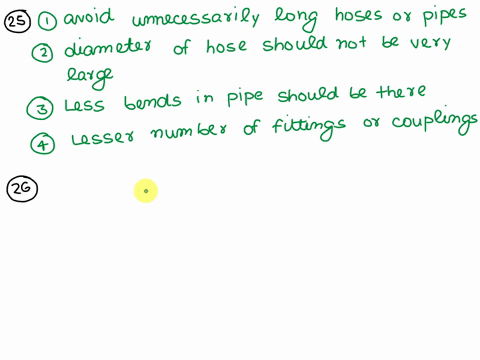 25 1 avoid unnecessarily long hoses or pipes
2 diameter of hose should not be very
large
3 Less bends in pipe should be there
4 Lesser number of fittings or couplings
26